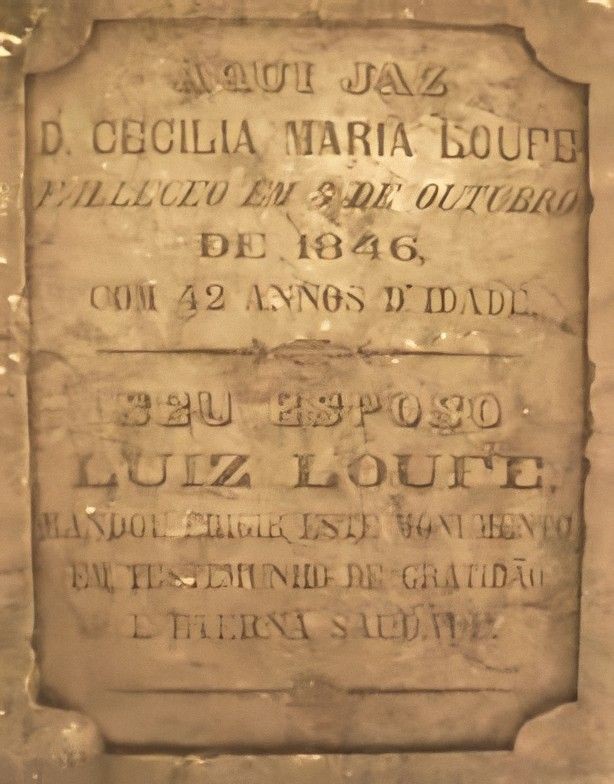 AQUI JAZ
D. CECILIA MARIA LOUFE
FALLECEO EM 8 DE OUTUBRO
DE 1846,
COM 42 ANNOS D'IDADE.
SEU ESPOSO
LUIZ LOUFE,
MANDOU ERIGIR ESTE MONUMENTO
EM TESTEMUNHO DE GRATIDÃO
E ETERNA SAUDADE.